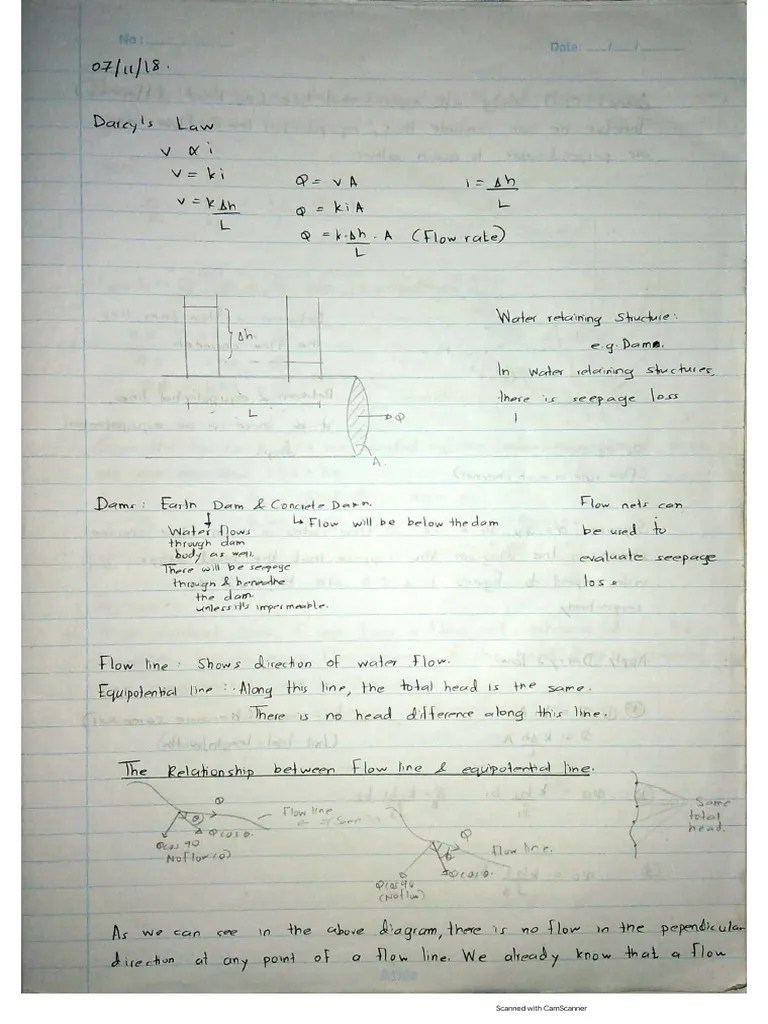 No :
Date
07/11/18.
Darcy's Law
v ∝ i
v = ki
v = k Δh
L
Q = vA
Q = kiA
Q = k.Δh . A (Flow rate)
L
i = Δh
L
Δh
L
Q
A
Water retaining structure:
e.g. Dams.
In water retaining structures,
there is seepage loss
Dams: Earth Dam & Concrete Dam.
Water flows
through dam
body as well.
There will be seepage
through & beneathe
the dam
unless it's impermeable.
↳ Flow will be below the dam
Flow nets can
be used to
evaluate seepage
loss.
Flow line : Shows direction of water flow.
Equipotential line : Along this line, the total head is the same.
There is no head difference along this line.
The Relationship between Flow line & equipotential line.
Q
Flow line
θ
Qcosθ
Qcos 90
No flow (0)
Q
flow line.
θ
Qcosθ
Qcos90
(No flow)
Same
total
head.
As we can see in the above diagram, there is no flow in the pependicular
direction at any point of a flow line. We already know that a flow
Scanned with CamScanner